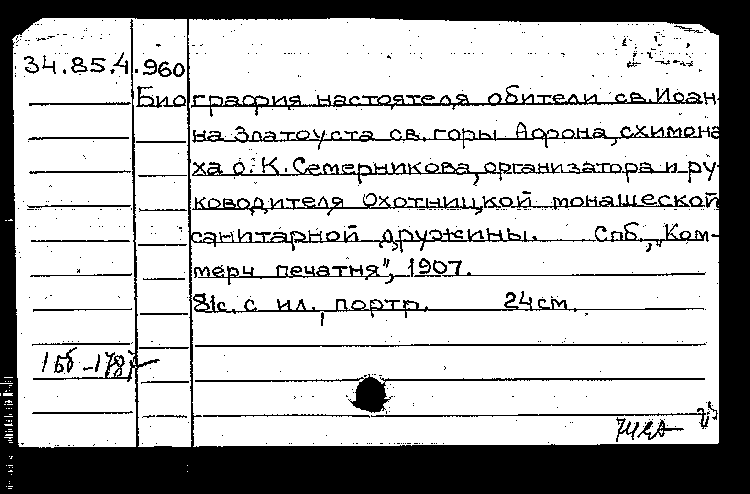 34.85.4.960
Биография настоятеля обители св. Иоан-
на Златоуста св. горы Афона, схимона
ха о. К. Семерникова, организатора и ру-
ководителя Охотницкой монашеской
санитарной дружины. Спб., „Ком-
мерч печатня", 1907.
81с. с ил., портр. 24см.